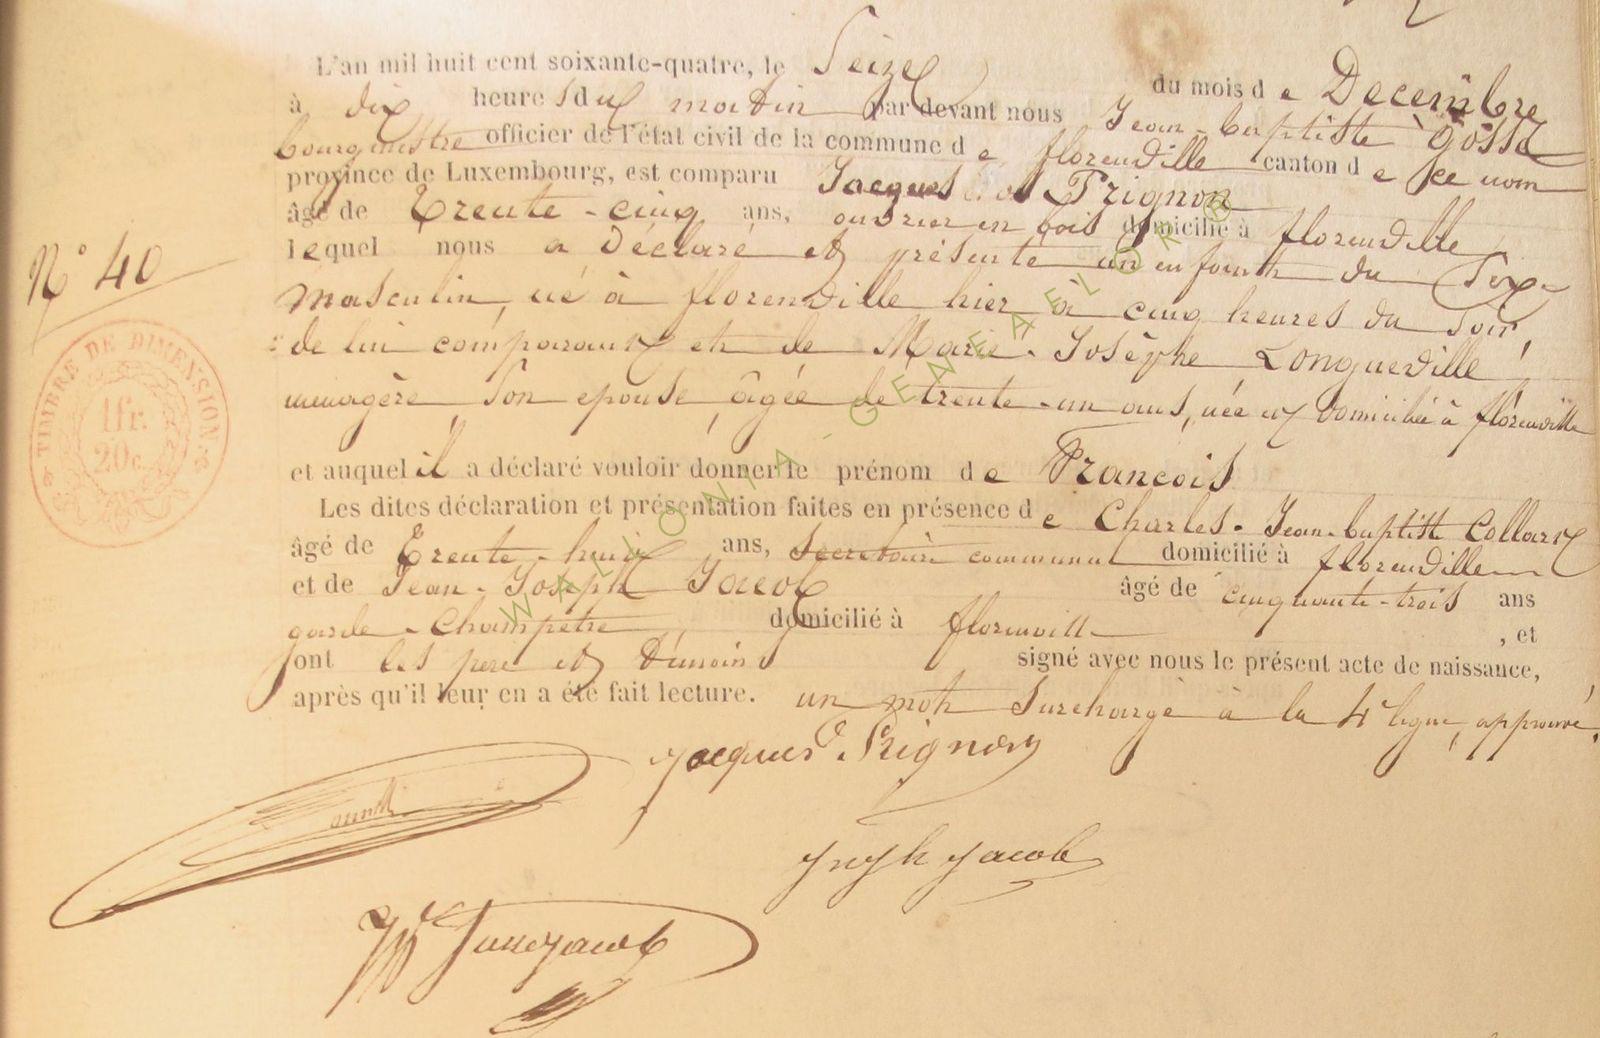 L'an mil huit cent soixante-quatre, le Seize du mois de Decembre
à dix heures du matin par devant nous Jean-baptiste Gosse
bourgmestre officier de l'état civil de la commune de florenville canton de ce nom
province de Luxembourg, est comparu Jacques Prignon
âgé de Trente-cinq ans, ouvrier en bois domicilié à florenville
lequel nous a déclaré et présenté un enfant du Sexe
N° 40
masculin, né à florenville hier à cinq heures du Soir,
de lui comparant et de Marie-Josèphe Longueville
ménagère Son epouse, âgée de trente-un ans, née et domiciliée à florenville
TIMBRE DE DIMENSION.
1fr.
20c.
et auquel il a déclaré vouloir donner le prénom de Francois
Les dites déclaration et présentation faites en présence de Charles-Jean-baptiste Collard
âgé de Trente-huit ans, Secretaire communal domicilié à florenville
et de Jean-Joseph Jacob âgé de cinquante-trois ans
garde-Champetre domicilié à florenville, et
ont les pere et témoins signé avec nous le présent acte de naissance,
après qu'il leur en a été fait lecture. un mot Surchargé à la 4e ligne, approuvé.
Jacques Prignon
Jacob
WALLONIA-GENEAELOR